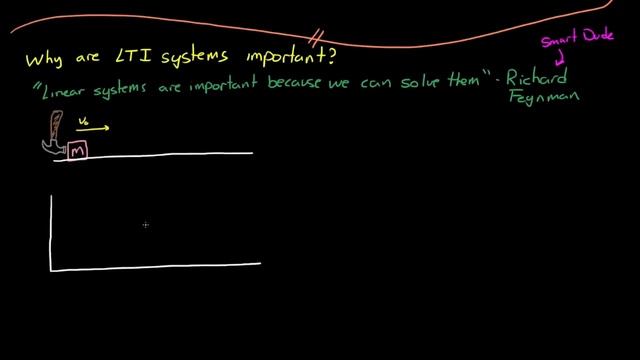 Smart Dude
Why are LTI systems important?
"Linear systems are important because we can solve them" - Richard
Feynman
V₀
m